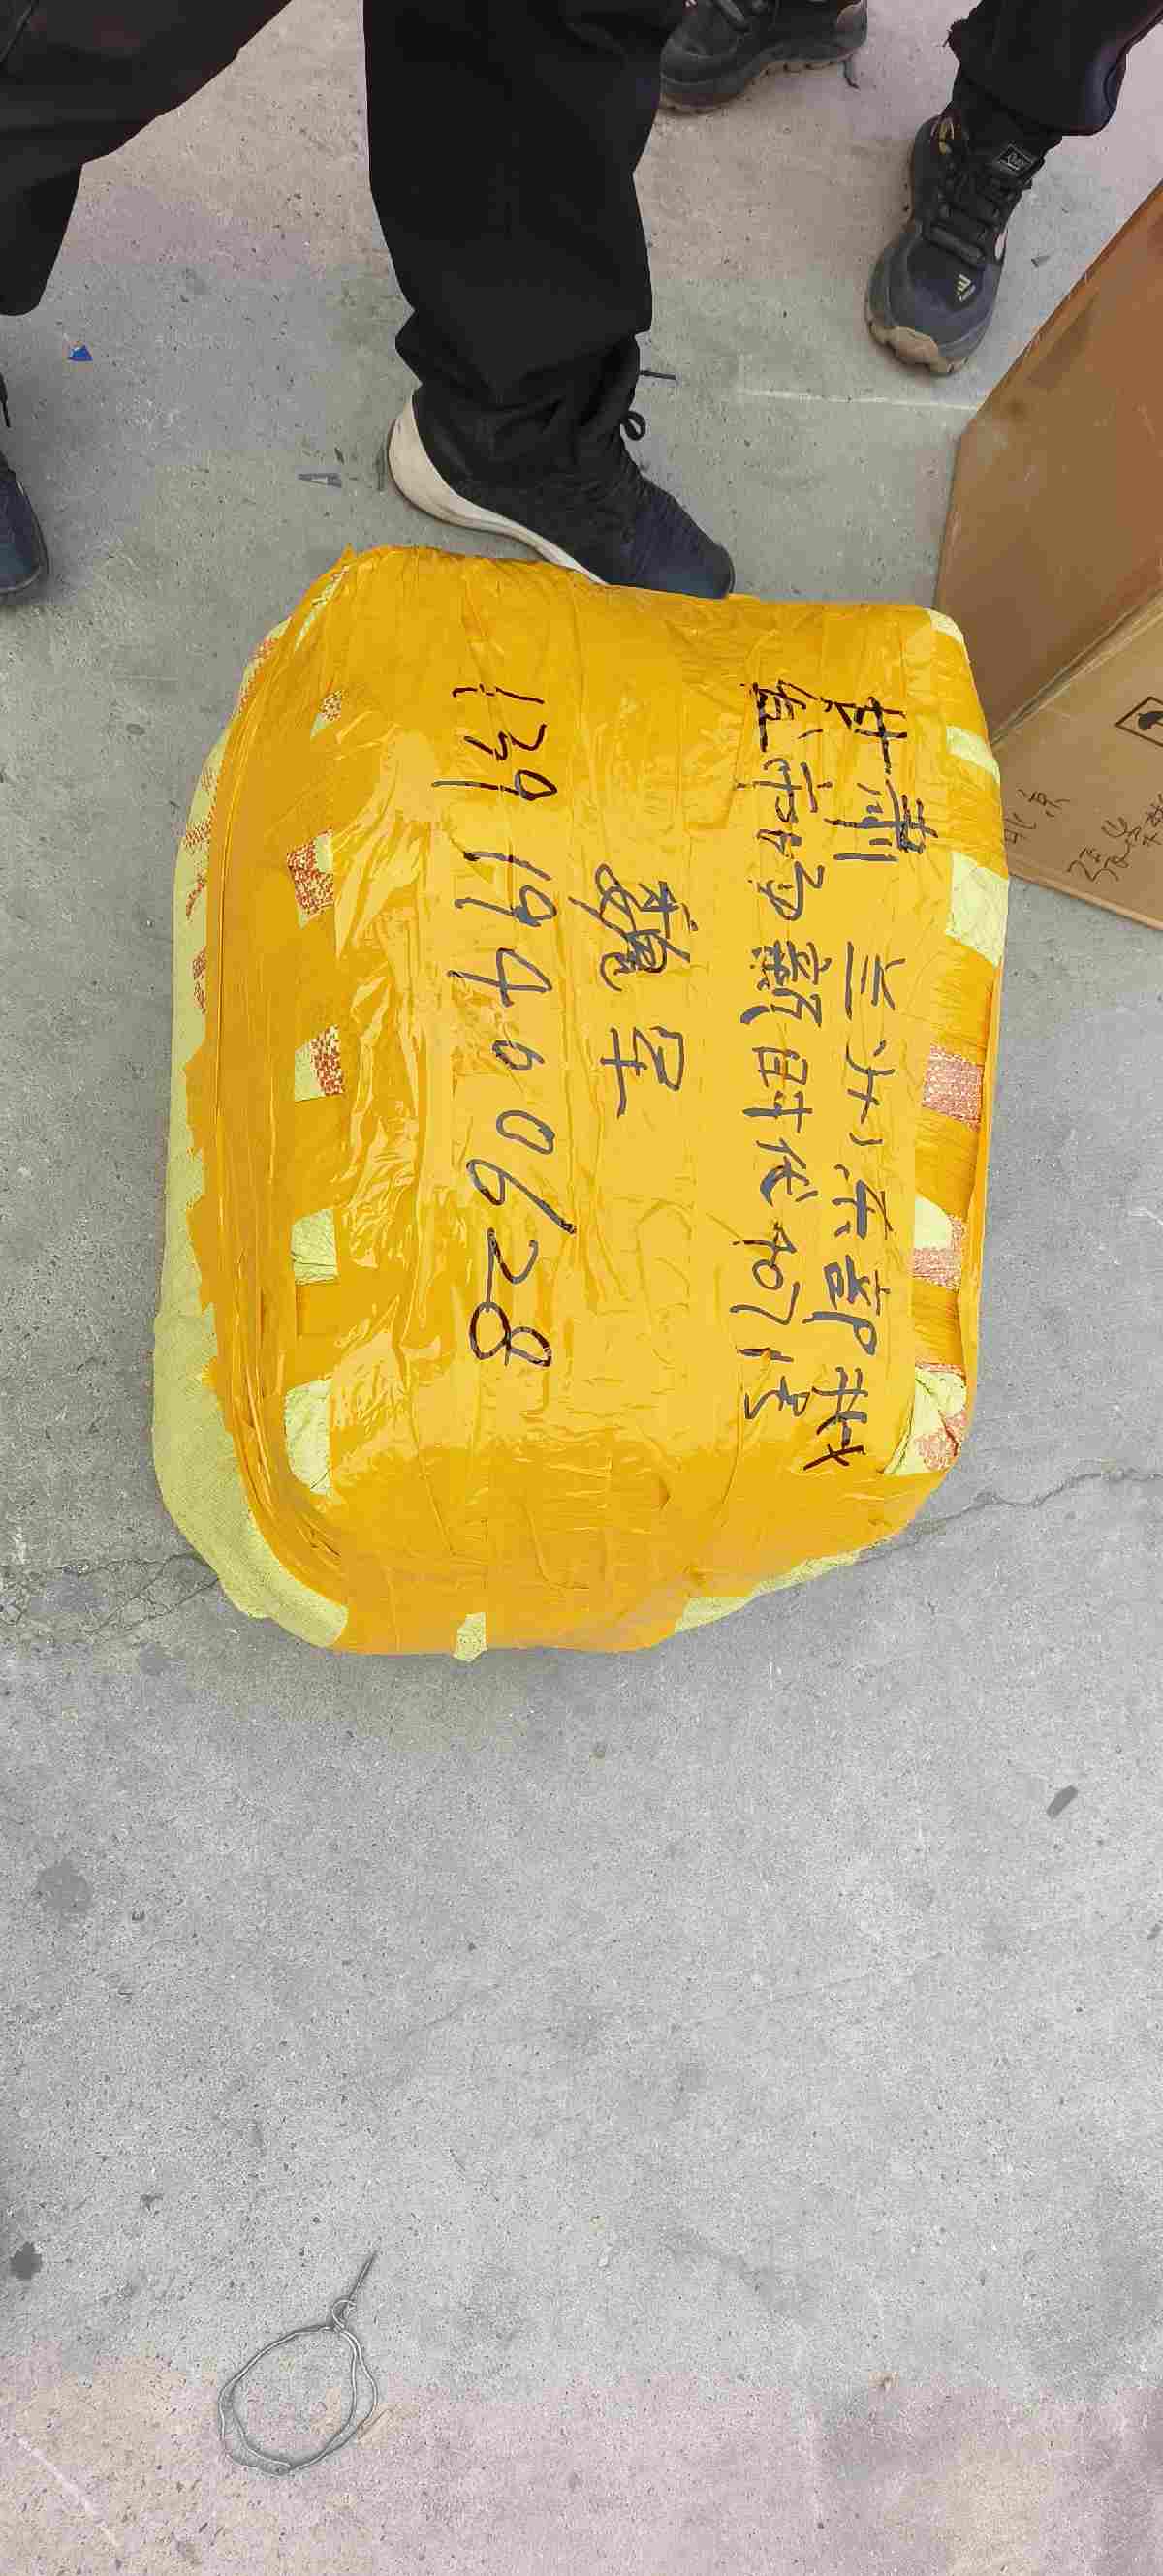 甘肃 兰州东部批
发市场新时代4071号
魏军
139 194 00628
北京